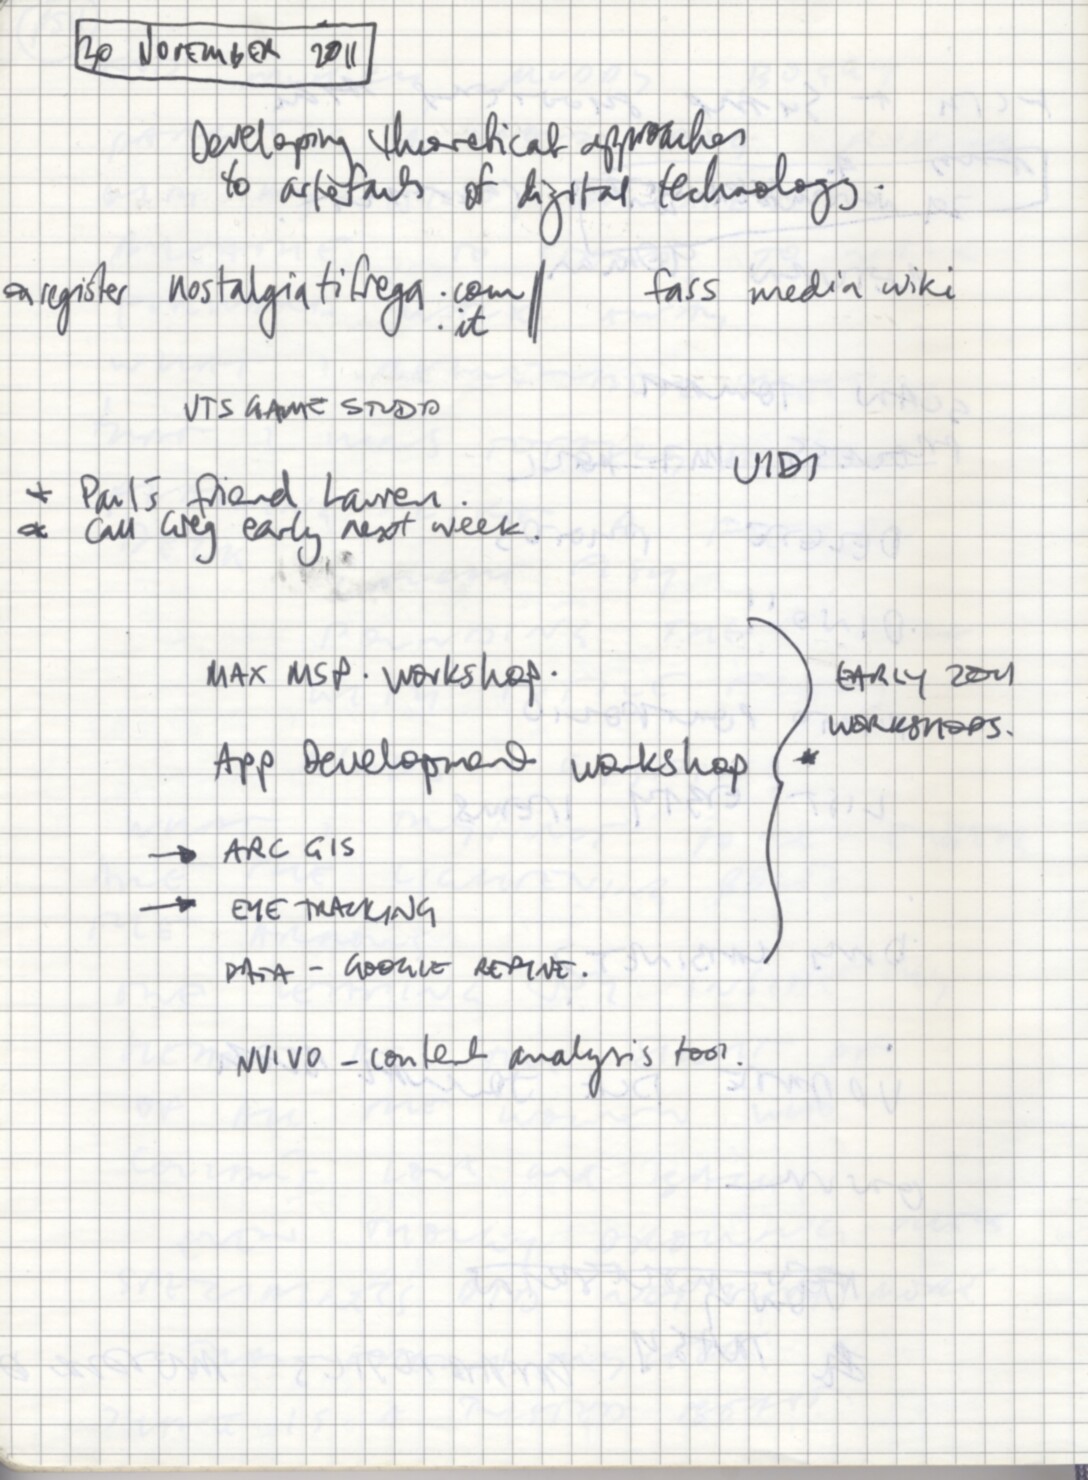 20 NOVEMBER 2011
Developing theoretical approaches
to artefacts of digital technology.
register nostalgiatifrega.com // fass media wiki
.it
UTS GAME STUDIO
UIDI
* Paul's friend Lauren.
* Call Greg early next week.
MAX MSP. workshop.
EARLY 2011
WORKSHOPS.
App Development workshop *
→ ARC GIS
→ EYE TRACKING
DATA - GOOGLE REFINE.
NVIVO - content analysis tool.